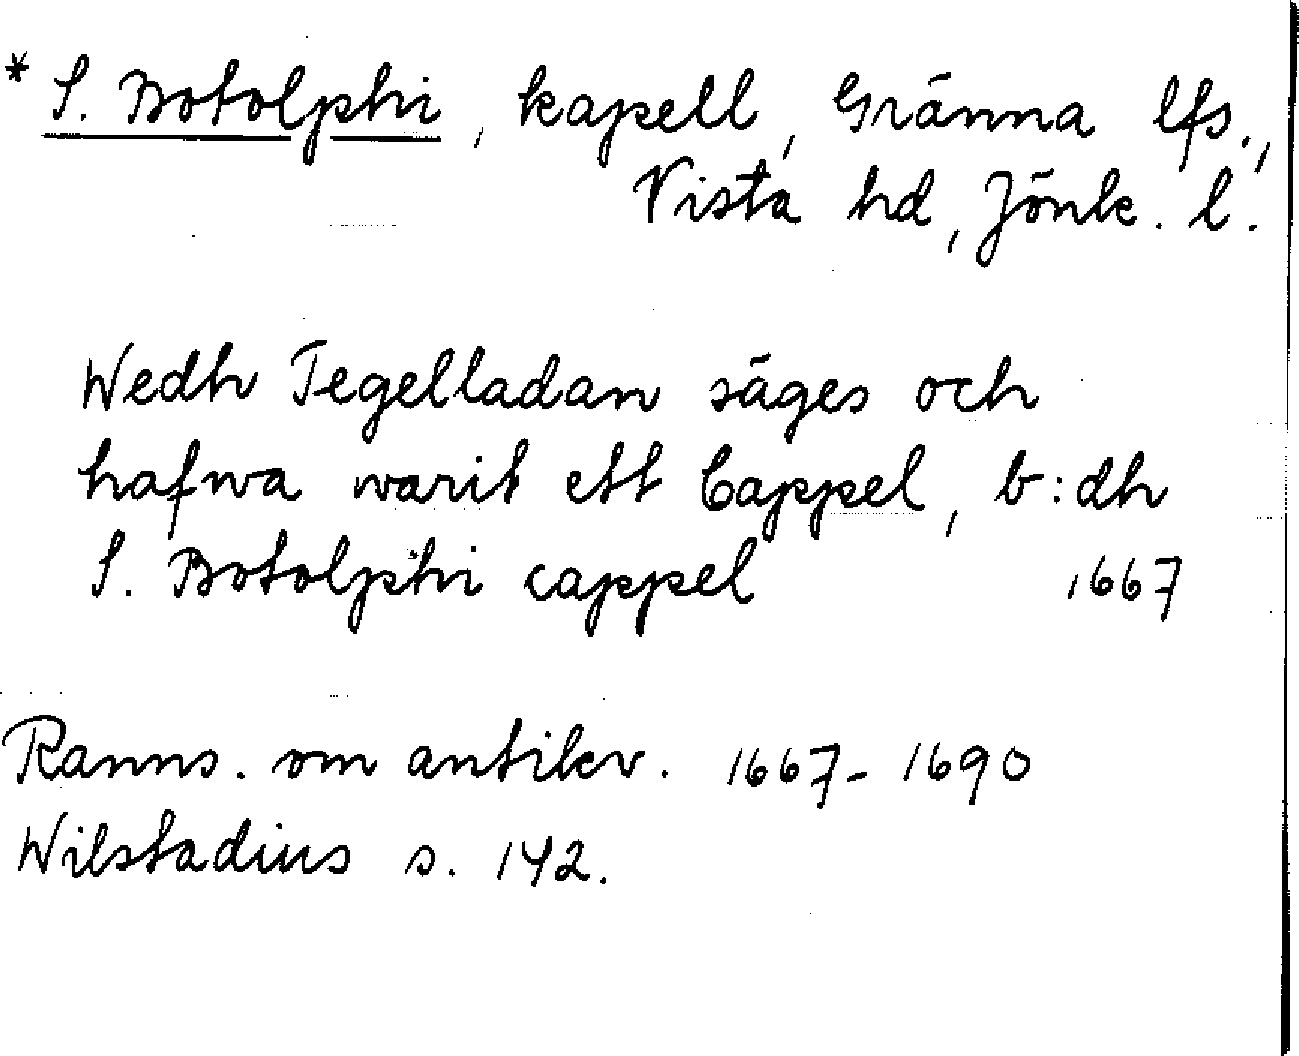 * S. Botolphi, kapell, Gränna lfs.,
Vista hd, Jönk. l.
Wedh Tegelladan säges och
hafwa warit ett Cappel, b:dh
S. Botolphi cappel 1667
Ranns. om antikv. 1667-1690
Wilstadius s. 142.